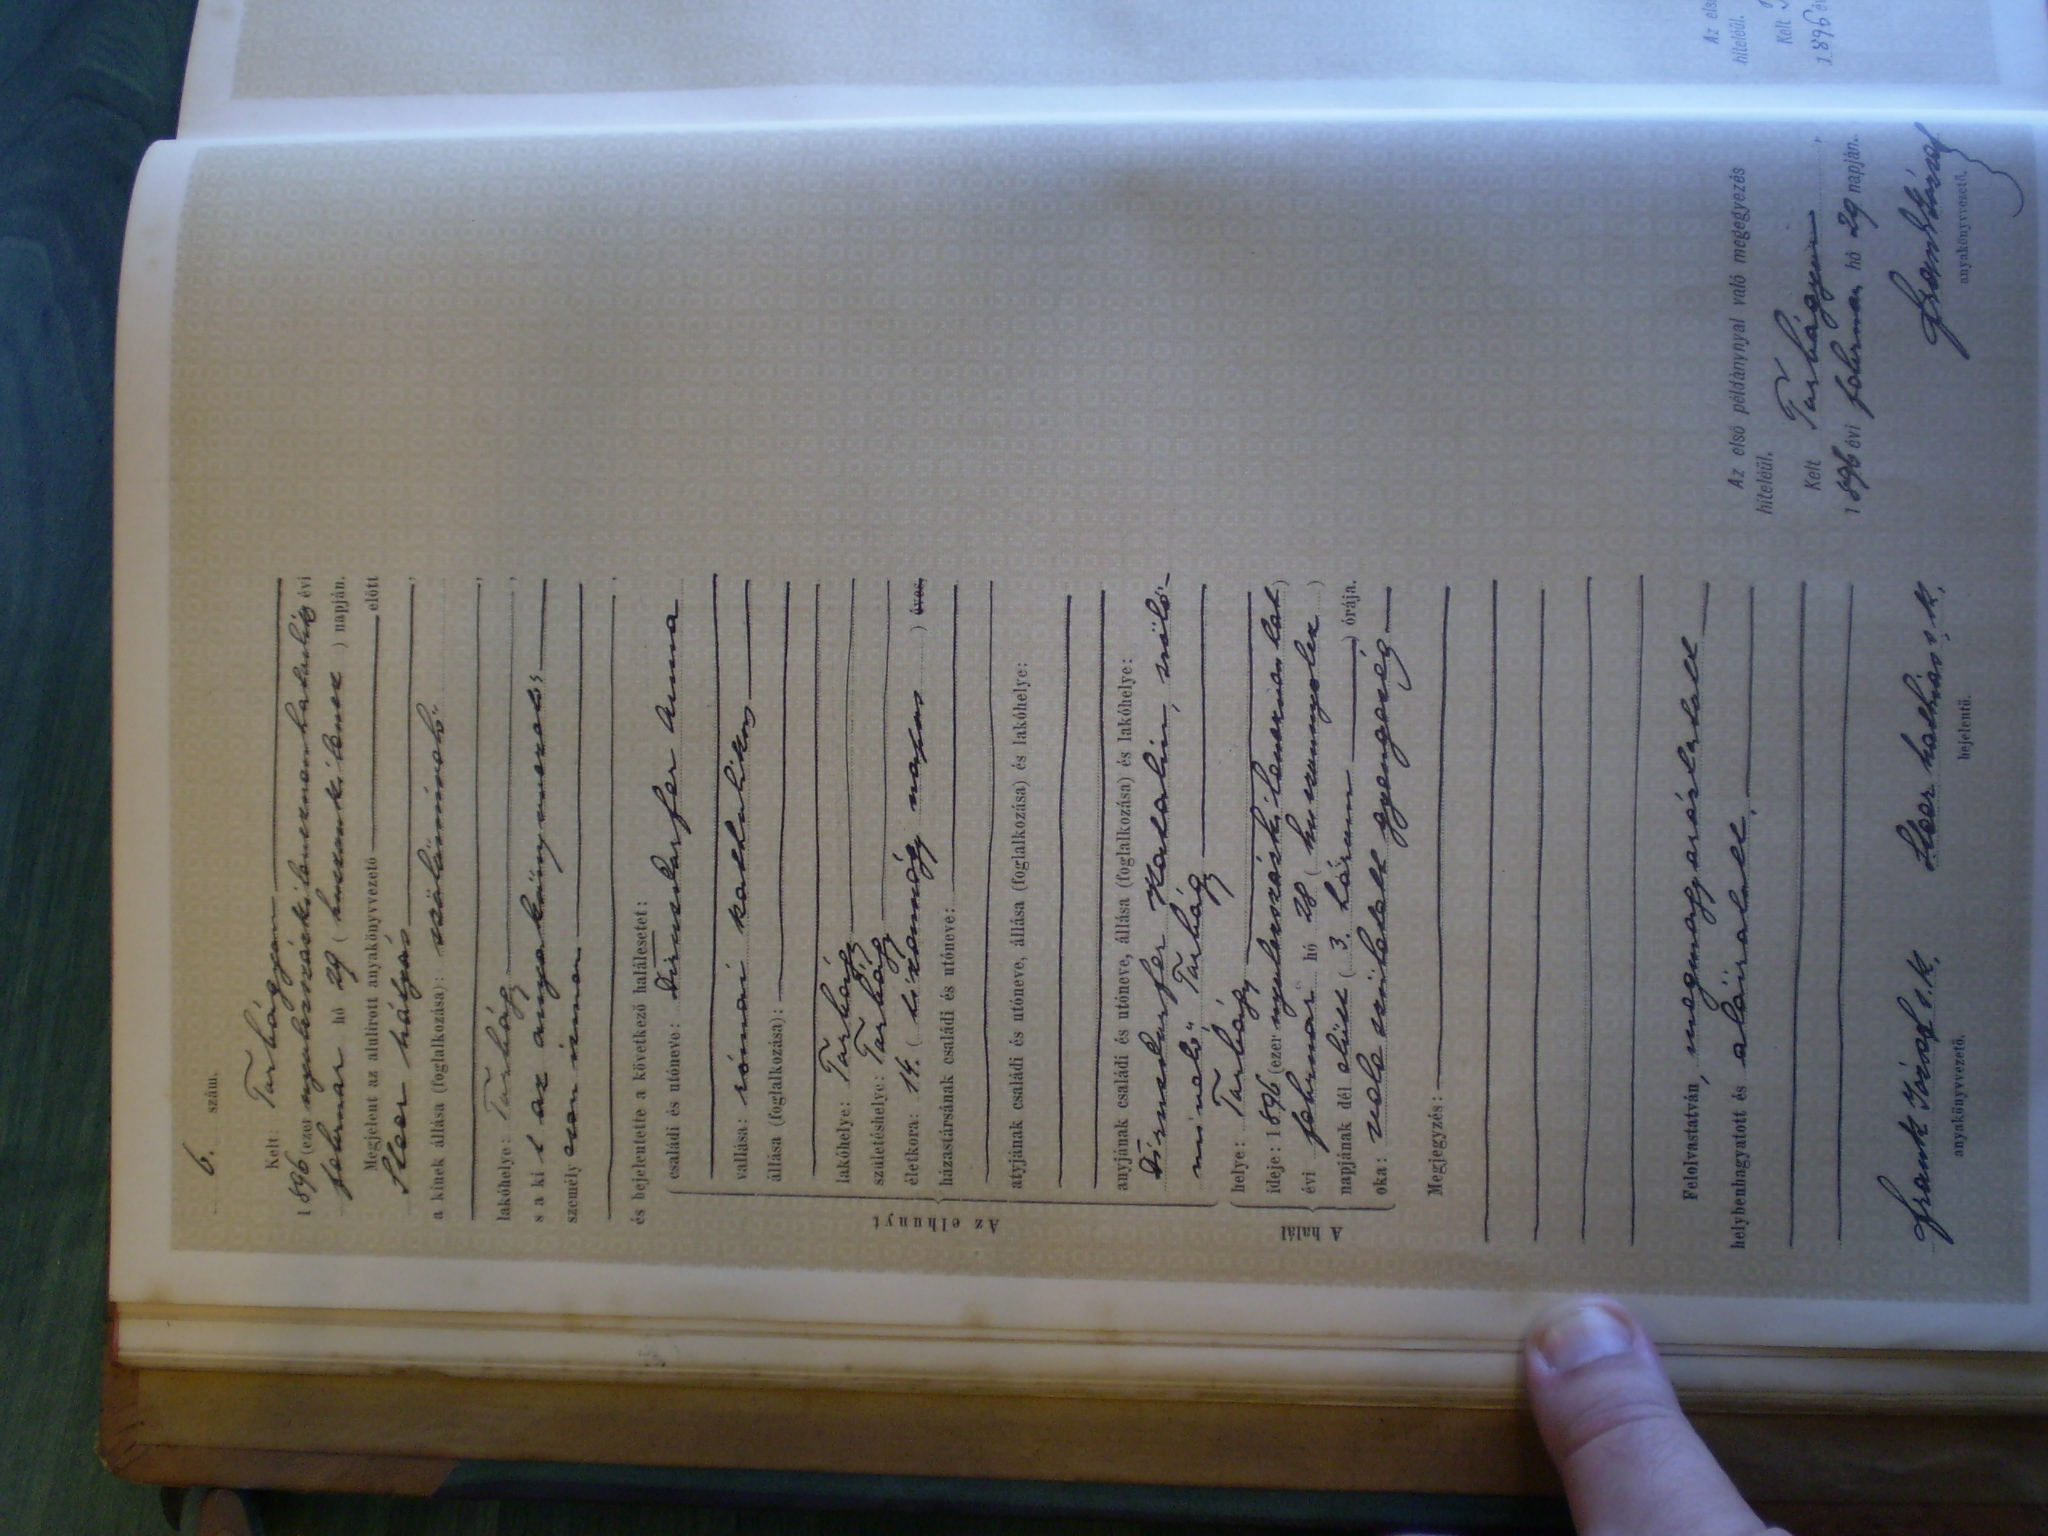 6. szám.
Kelt: Torbágyon
1896 (ezer nyolcszázkilencvenhatodik) évi
februar hó 29 (huszonkilencz) napján.
Megjelent az alulirott anyakönyvvezető előtt
Steer Mátyás
a kinek állása (foglalkozása): szőlőmívelő
lakóhelye: Torbágy,
s a ki t az anyakönyvvezető,
személyesen ismer
és bejelentette a következő halálesetet:
családi és utóneve: Anna
vallása: római katholikus
állása (foglalkozása):
lakóhelye: Torbágy
születéshelye: Torbágy
életkora: 14. (tizennégy napos) éves,
házastársának családi és utóneve:
atyjának családi és utóneve, állása (foglalkozása) és lakóhelye:
anyjának családi és utóneve, állása (foglalkozása) és lakóhelye:
Katalin, szőlő-
mívelő Torbágy
helye: Torbágy
ideje: 1896 (ezer nyolcszázkilenczvenhat)
évi februar hó 28 (huszonnyolcz)
napjának dél előtt (3. három) órája.
oka: vele született gyengeség
Az elhunyt
A halál
Megjegyzés:
Felolvastatván, megmagyaráztatott
helybenhagyatott és aláíratott.
Frank József s.k. Steer Mathias s.k.
anyakönyvvezető. bejelentő.
Az első példánynyal való megegyezés
hiteléül.
Kelt Torbágyon,
1896 évi februar hó 29 napján.
Frank József
anyakönyvvezető.
Az első
hiteléül.
Kelt
1896 év